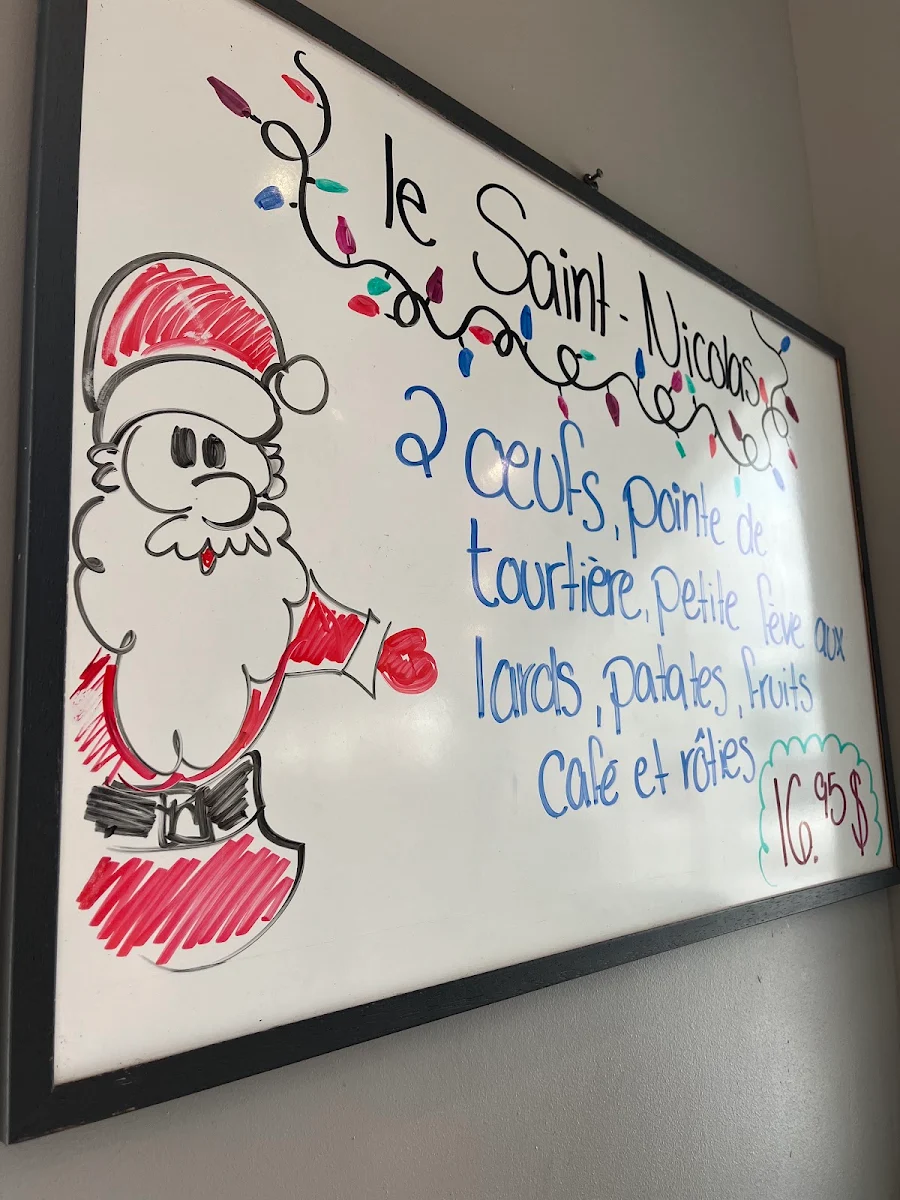 le Saint-Nicolas
2 œufs, pointe de
tourtière, petite fève aux
lards, patates, fruits
café et rôties
16.95 $